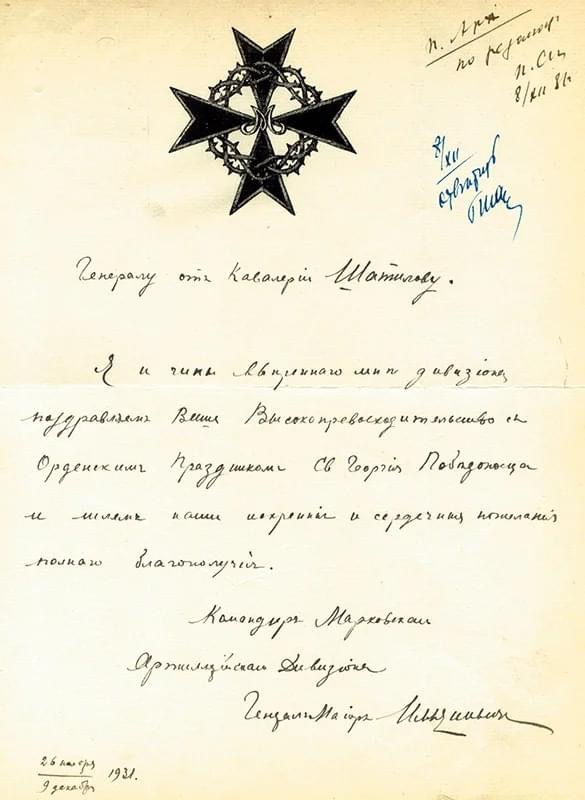 М
8/XII 31
8/XII
Генералу отъ Кавалеріи Шатилову.
Я и чины ввѣреннаго мнѣ дивизіона
поздравляемъ Ваше Высокопревосходительство съ
Орденскимъ Праздникомъ Св Георгія Побѣдоносца
и шлемъ наши искреннія и сердечныя пожеланія
полнаго благополучія.
Командиръ Марковскаго
Артиллерійскаго Дивизіона
Генералъ Маіоръ
26 ноября
9 декабря 1931.